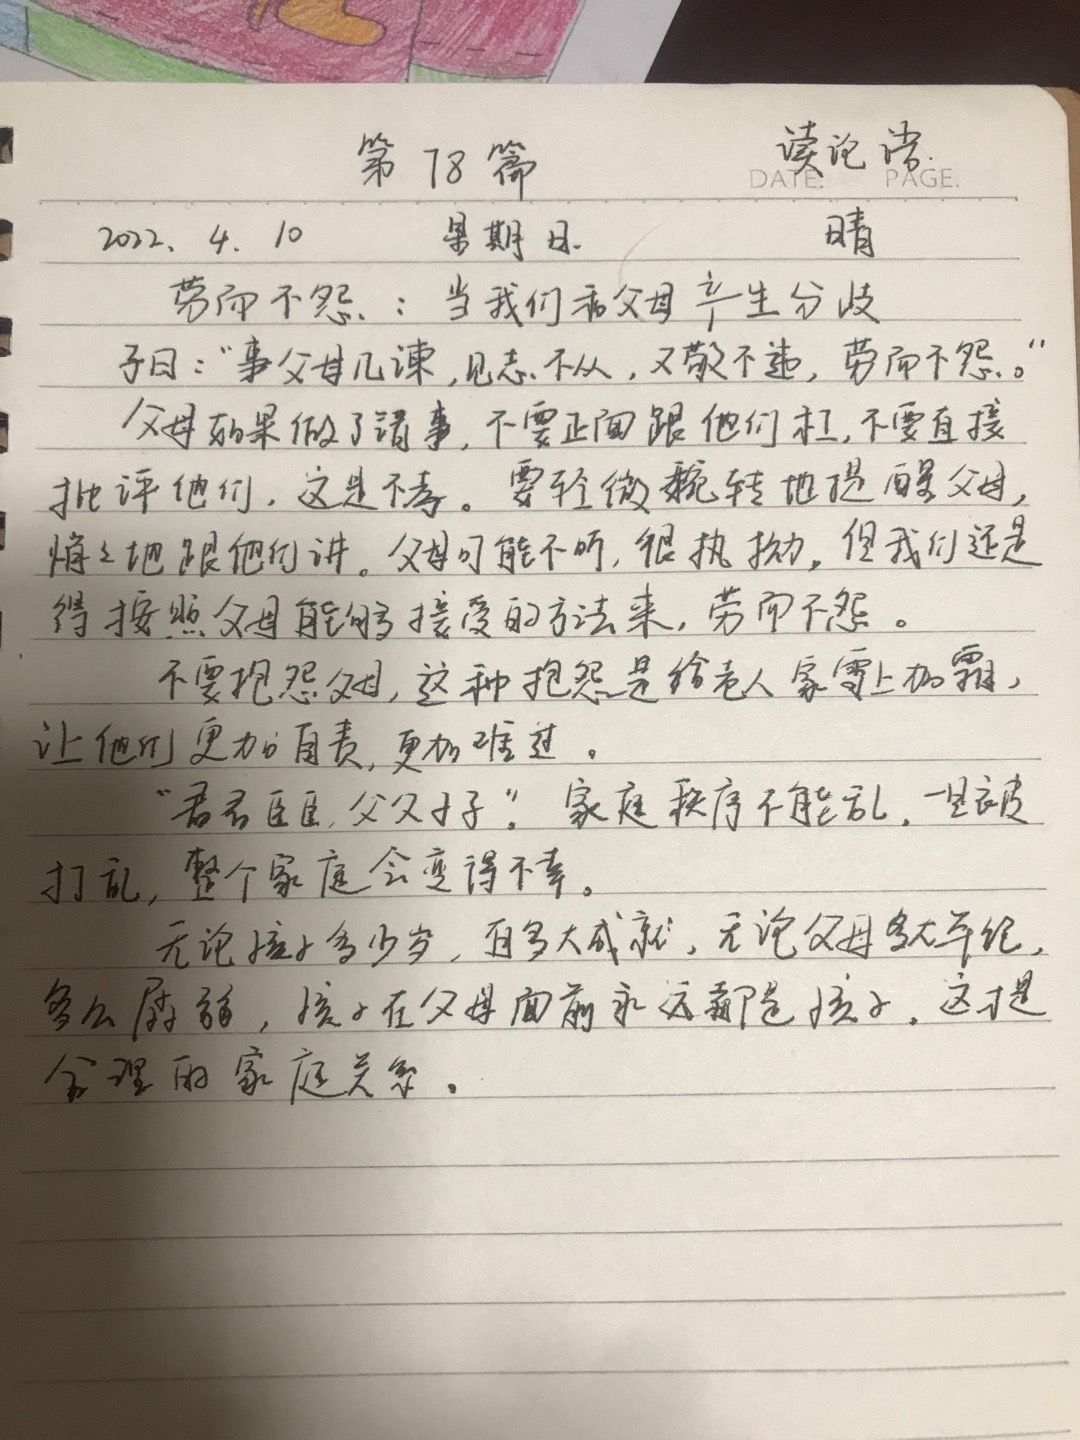 第78篇 读论语
DATE. PAGE.
2022. 4. 10 星期日. 晴
劳而不怨.：当我们和父母产生分歧
子曰：“事父母几谏，见志不从，又敬不违，劳而不怨。”
父母如果做了错事，不要正面跟他们杠，不要直接
批评他们，这是不孝。要轻微婉转地提醒父母，
悄々地跟他们讲。父母可能不听，很执拗，但我们还是
得按照父母能够接受的方法来，劳而不怨。
不要抱怨父母，这种抱怨是给老人家雪上加霜，
让他们更加自责，更加难过。
“君君臣臣，父父子子”。家庭秩序不能乱，一旦被
打乱，整个家庭会变得不幸。
无论孩子多少岁，有多大成就，无论父母多大年纪，
多么孱弱，孩子在父母面前永远都是孩子，这才是
合理的家庭关系。